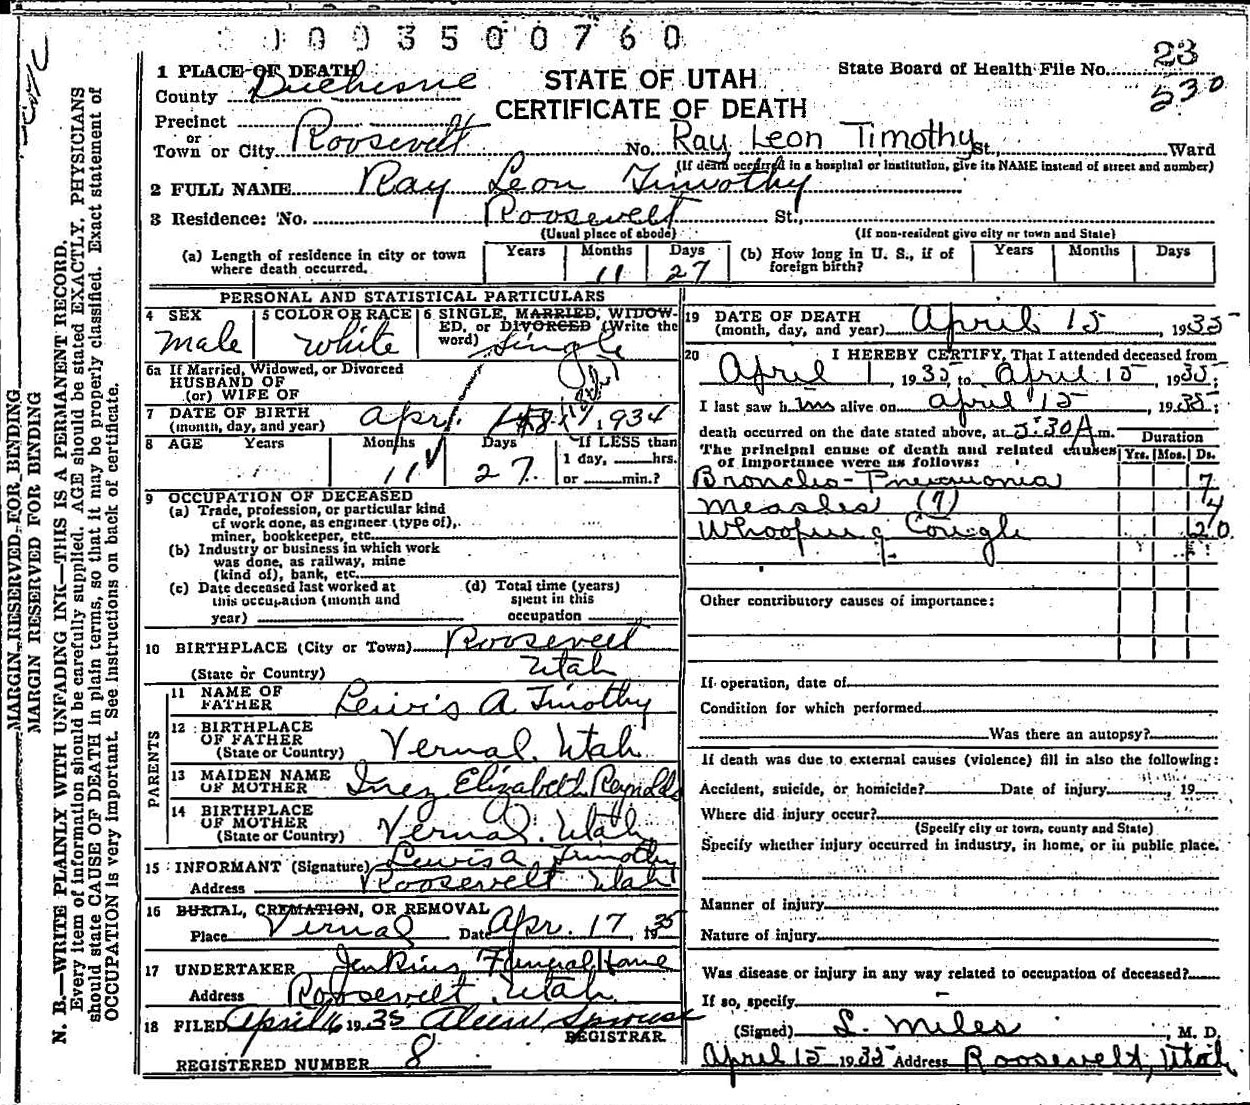 0 0 0 3 5 0 0 7 6 0
1 PLACE OF DEATH
County Duchesne
STATE OF UTAH
CERTIFICATE OF DEATH
State Board of Health File No. 23
530
Precinct
or
Town or City Roosevelt No. Ray Leon Timothy St., Ward
(If death occurred in a hospital or institution, give its NAME instead of street and number)
2 FULL NAME Ray Leon Timothy
3 Residence: No. Roosevelt St.,
(Usual place of abode) (If non-resident give city or town and State)
(a) Length of residence in city or town where death occurred. Years Months 11 Days 27
(b) How long in U. S., if of foreign birth? Years Months Days
PERSONAL AND STATISTICAL PARTICULARS
4 SEX Male
5 COLOR OR RACE White
6 SINGLE, MARRIED, WIDOW-
ED, or DIVORCED (Write the
word) Single
6a If Married, Widowed, or Divorced
HUSBAND OF
(or) WIFE OF
7 DATE OF BIRTH
(month, day, and year) Apr. 18, 1934
8 AGE Years Months 11 Days 27 If LESS than
1 day, hrs.
or min.?
9 OCCUPATION OF DECEASED
(a) Trade, profession, or particular kind
of work done, as engineer (type of),
miner, bookkeeper, etc.
(b) Industry or business in which work
was done, as railway, mine
(kind of), bank, etc.
(c) Date deceased last worked at
this occupation (month and
year)
(d) Total time (years)
spent in this
occupation
10 BIRTHPLACE (City or Town) Roosevelt
(State or Country) Utah
PARENTS
11 NAME OF
FATHER Lewis A Timothy
12 BIRTHPLACE
OF FATHER
(State or Country) Vernal, Utah
13 MAIDEN NAME
OF MOTHER Inez Elizabeth Reynolds
14 BIRTHPLACE
OF MOTHER
(State or Country) Vernal, Utah
15 INFORMANT (Signature) Lewis A Timothy
Address Roosevelt Utah
16 BURIAL, CREMATION, OR REMOVAL
Place Vernal Date Apr. 17, 1935
17 UNDERTAKER Jenkins Funeral Home
Address Roosevelt, Utah
18 FILED April 16 1935
REGISTRAR
REGISTERED NUMBER 8
19 DATE OF DEATH
(month, day, and year) April 15, 1935
20 I HEREBY CERTIFY, That I attended deceased from
April 1, 1935 to April 15, 1935;
I last saw him alive on April 15, 1935;
death occurred on the date stated above, at 5:30 A m.
The principal cause of death and related causes
of importance were as follows:
Duration
Yrs. Mos. Ds.
Broncho-Pneumonia 7
Measles (7) 4
Whooping Cough 20
Other contributory causes of importance:
If operation, date of
Condition for which performed
Was there an autopsy?
If death was due to external causes (violence) fill in also the following:
Accident, suicide, or homicide? Date of injury , 19
Where did injury occur?
(Specify city or town, county and State)
Specify whether injury occurred in industry, in home, or in public place.
Manner of injury
Nature of injury
Was disease or injury in any way related to occupation of deceased?
If so, specify
(Signed) L. Miles, M. D.
April 15 1935 Address Roosevelt, Utah
MARGIN RESERVED FOR BINDING
MARGIN RESERVED FOR BINDING
N. B.—WRITE PLAINLY WITH UNFADING INK—THIS IS A PERMANENT RECORD.
Every item of information should be carefully supplied. AGE should be stated EXACTLY. PHYSICIANS
should state CAUSE OF DEATH in plain terms, so that it may be properly classified. Exact statement of
OCCUPATION is very important. See instructions on back of certificate.